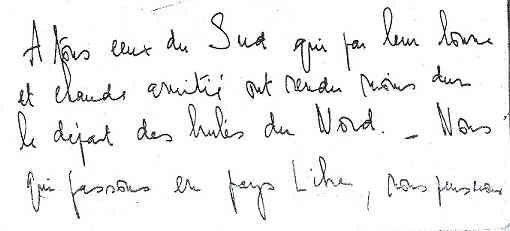 A tous ceux du Sud qui par leur bonne
et chaude amitié ont rendu moins dur
le départ des brûlés du Nord. _ Nous
qui passons en pays Libre, nous pensons